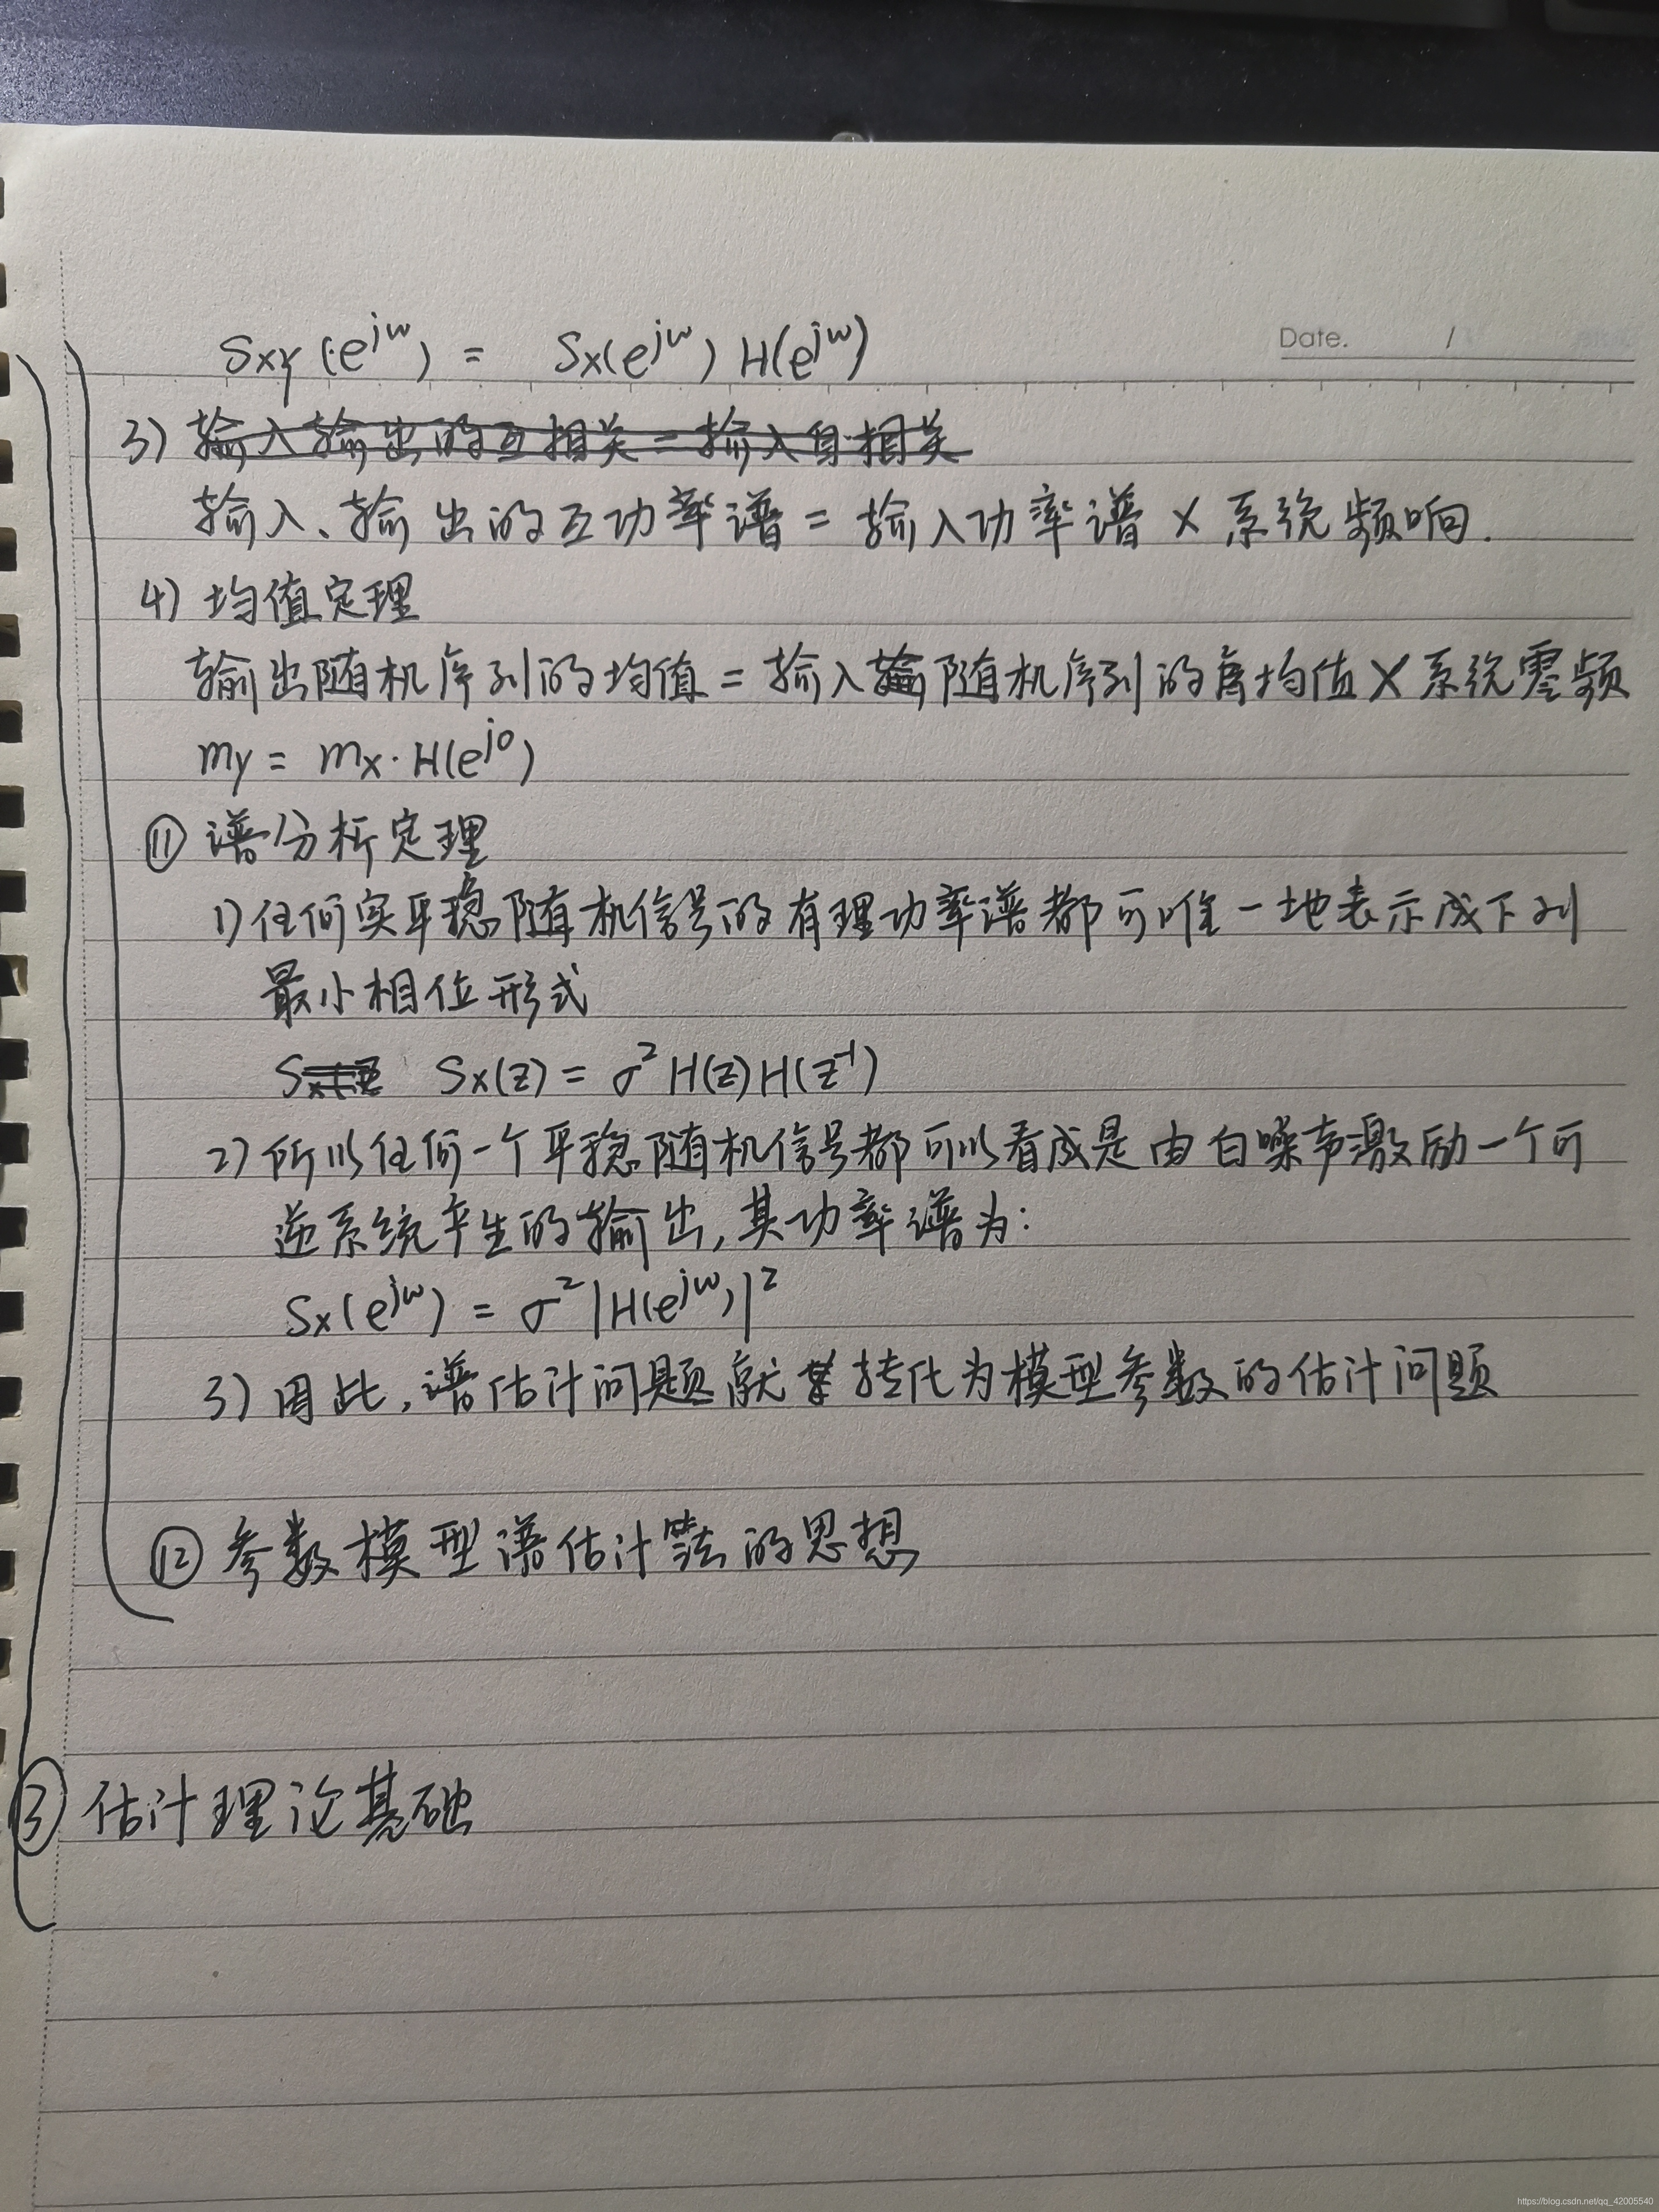 Sxy(e^jw) = Sx(e^jw) H(e^jw)
Date. /
3) 输入输出的互相关=输入自相关
输入、输出的互功率谱 = 输入功率谱 × 系统频响.
4) 均值定理
输出随机序列的均值 = 输入随机序列的均值 × 系统零频
my = mx · H(e^j0)
⑪ 谱分析定理
1) 任何实平稳随机信号的有理功率谱都可唯一地表示成下列
最小相位形式
Sx(z) = σ² H(z)H(z⁻¹)
2) 所以任何一个平稳随机信号都可以看成是由白噪声激励一个可
逆系统产生的输出,其功率谱为:
Sx(e^jw) = σ²|H(e^jw)|²
3) 因此,谱估计问题就转化为模型参数的估计问题
⑫ 参数模型谱估计算法的思想
③ 估计理论基础
https://blog.csdn.net/qq_42005540